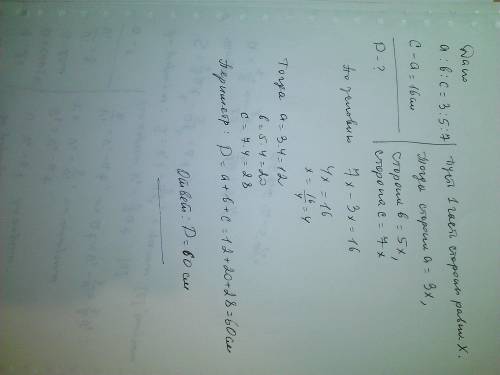 Дано
a : в : с = 3 : 5 : 7
с - a = 16 см
P - ?
Пусть 1 часть стороны равна x.
Тогда сторона a = 3x,
сторона в = 5x,
сторона с = 7x
По условию
7x - 3x = 16
4x = 16
x = 16/4 = 4
Тогда a = 3·4 = 12
в = 5·4 = 20
с = 7·4 = 28
Периметр: P = a + в + с = 12 + 20 + 28 = 60 см
Ответ: P = 60 см